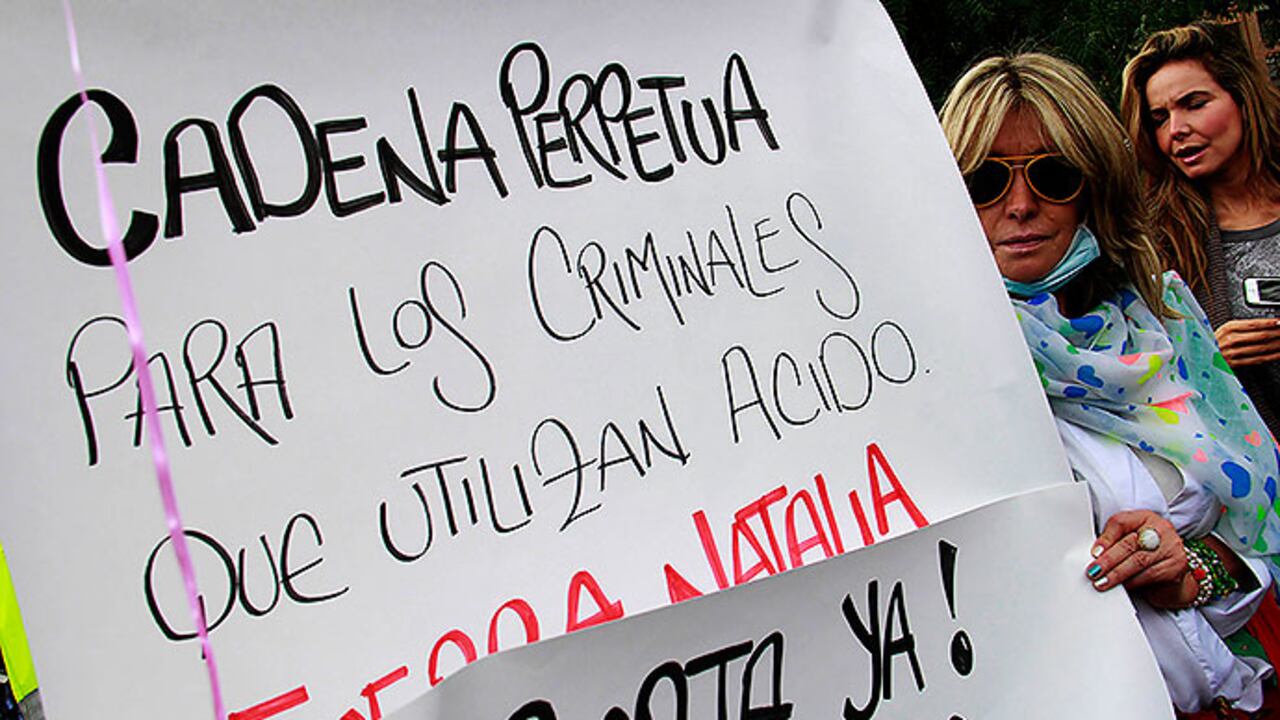 CADENA PERPETUA
PARA LOS CRIMINALES
QUE UTILIZAN ACIDO.
NATALIA
YA!